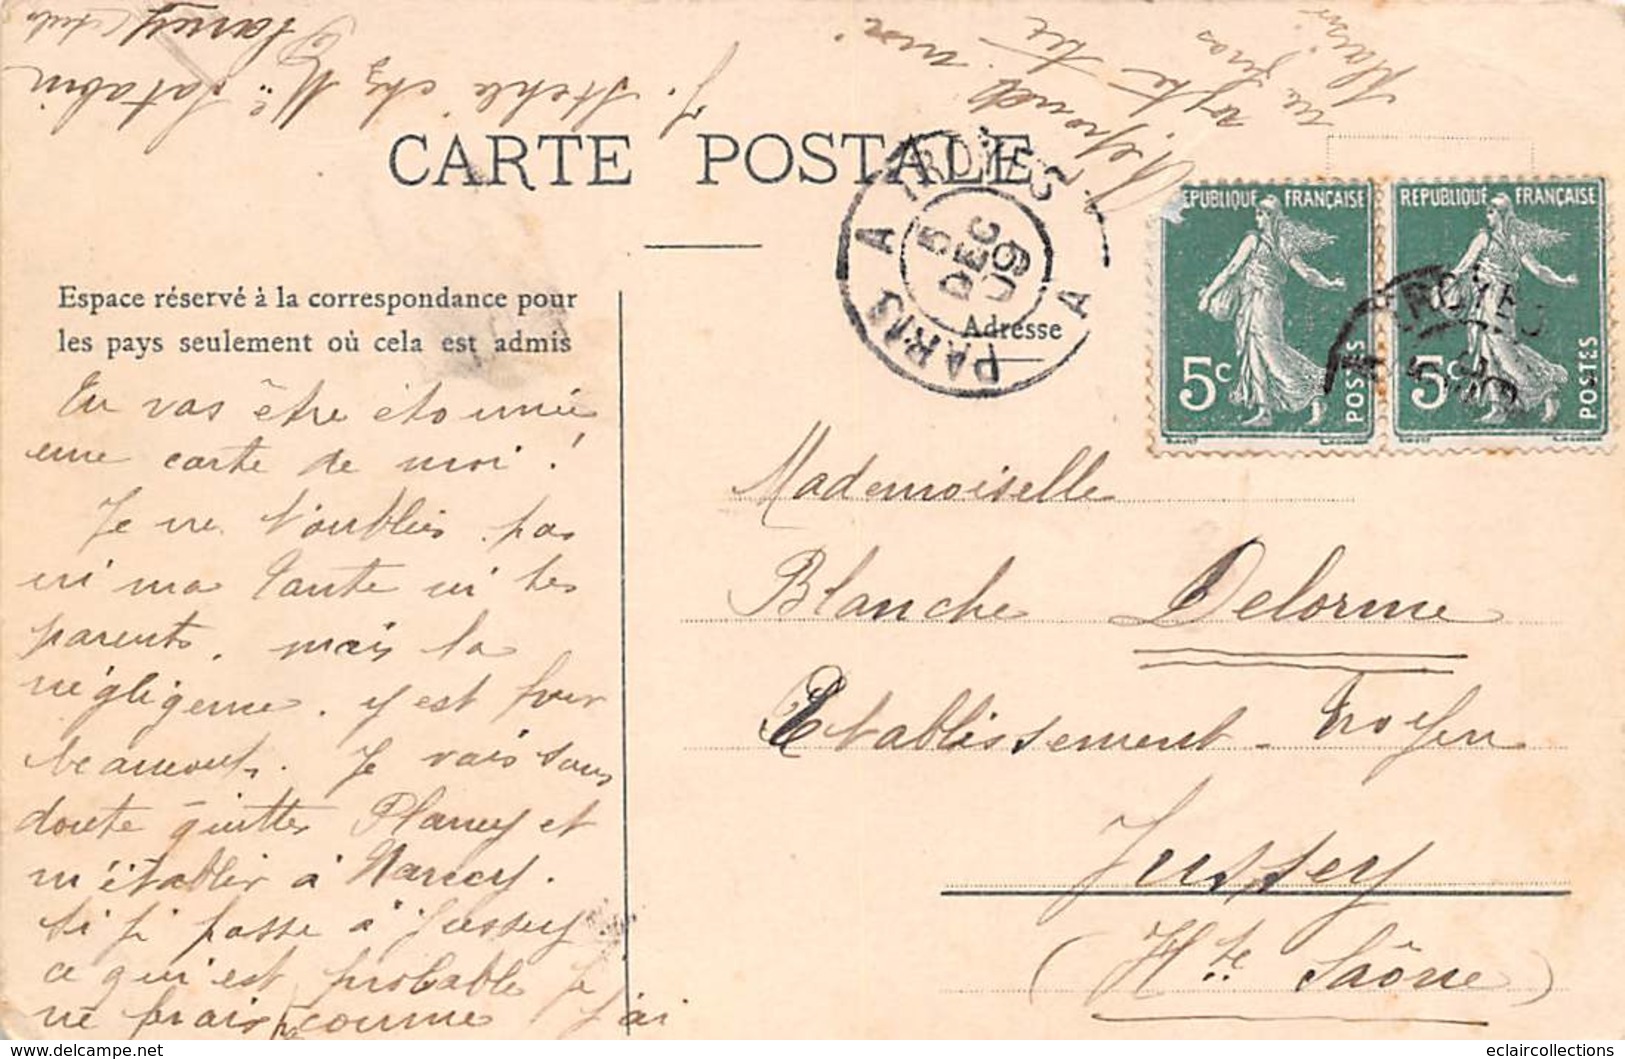 CARTE POSTALE
Espace réservé à la correspondance pour
les pays seulement où cela est admis
Adresse
PARIS A TROYES A
PARIS
5
DEC
09
REPUBLIQUE FRANÇAISE
5c
POSTES
REPUBLIQUE FRANÇAISE
5c
POSTES
TROYES
Tu vas être étonnée
une carte de moi !
Je ne t'oublies pas
ni ma tante ni tes
parents, mais la
négligence y est pour
beaucoup. Je vais sans
doute quitter Plancy et
m'établir à Nancy.
si je passe à Jussey
ce qui est probable je
ne ferais comme j'ai
Mademoiselle
Blanche Delorme
Etablissement Troyen
Jussey
(Hte Saône)
Réponds moi
vite
tu feras
plaisir
J. Stehlé chez Me Patabin
Plancy Aube
eclaircollections